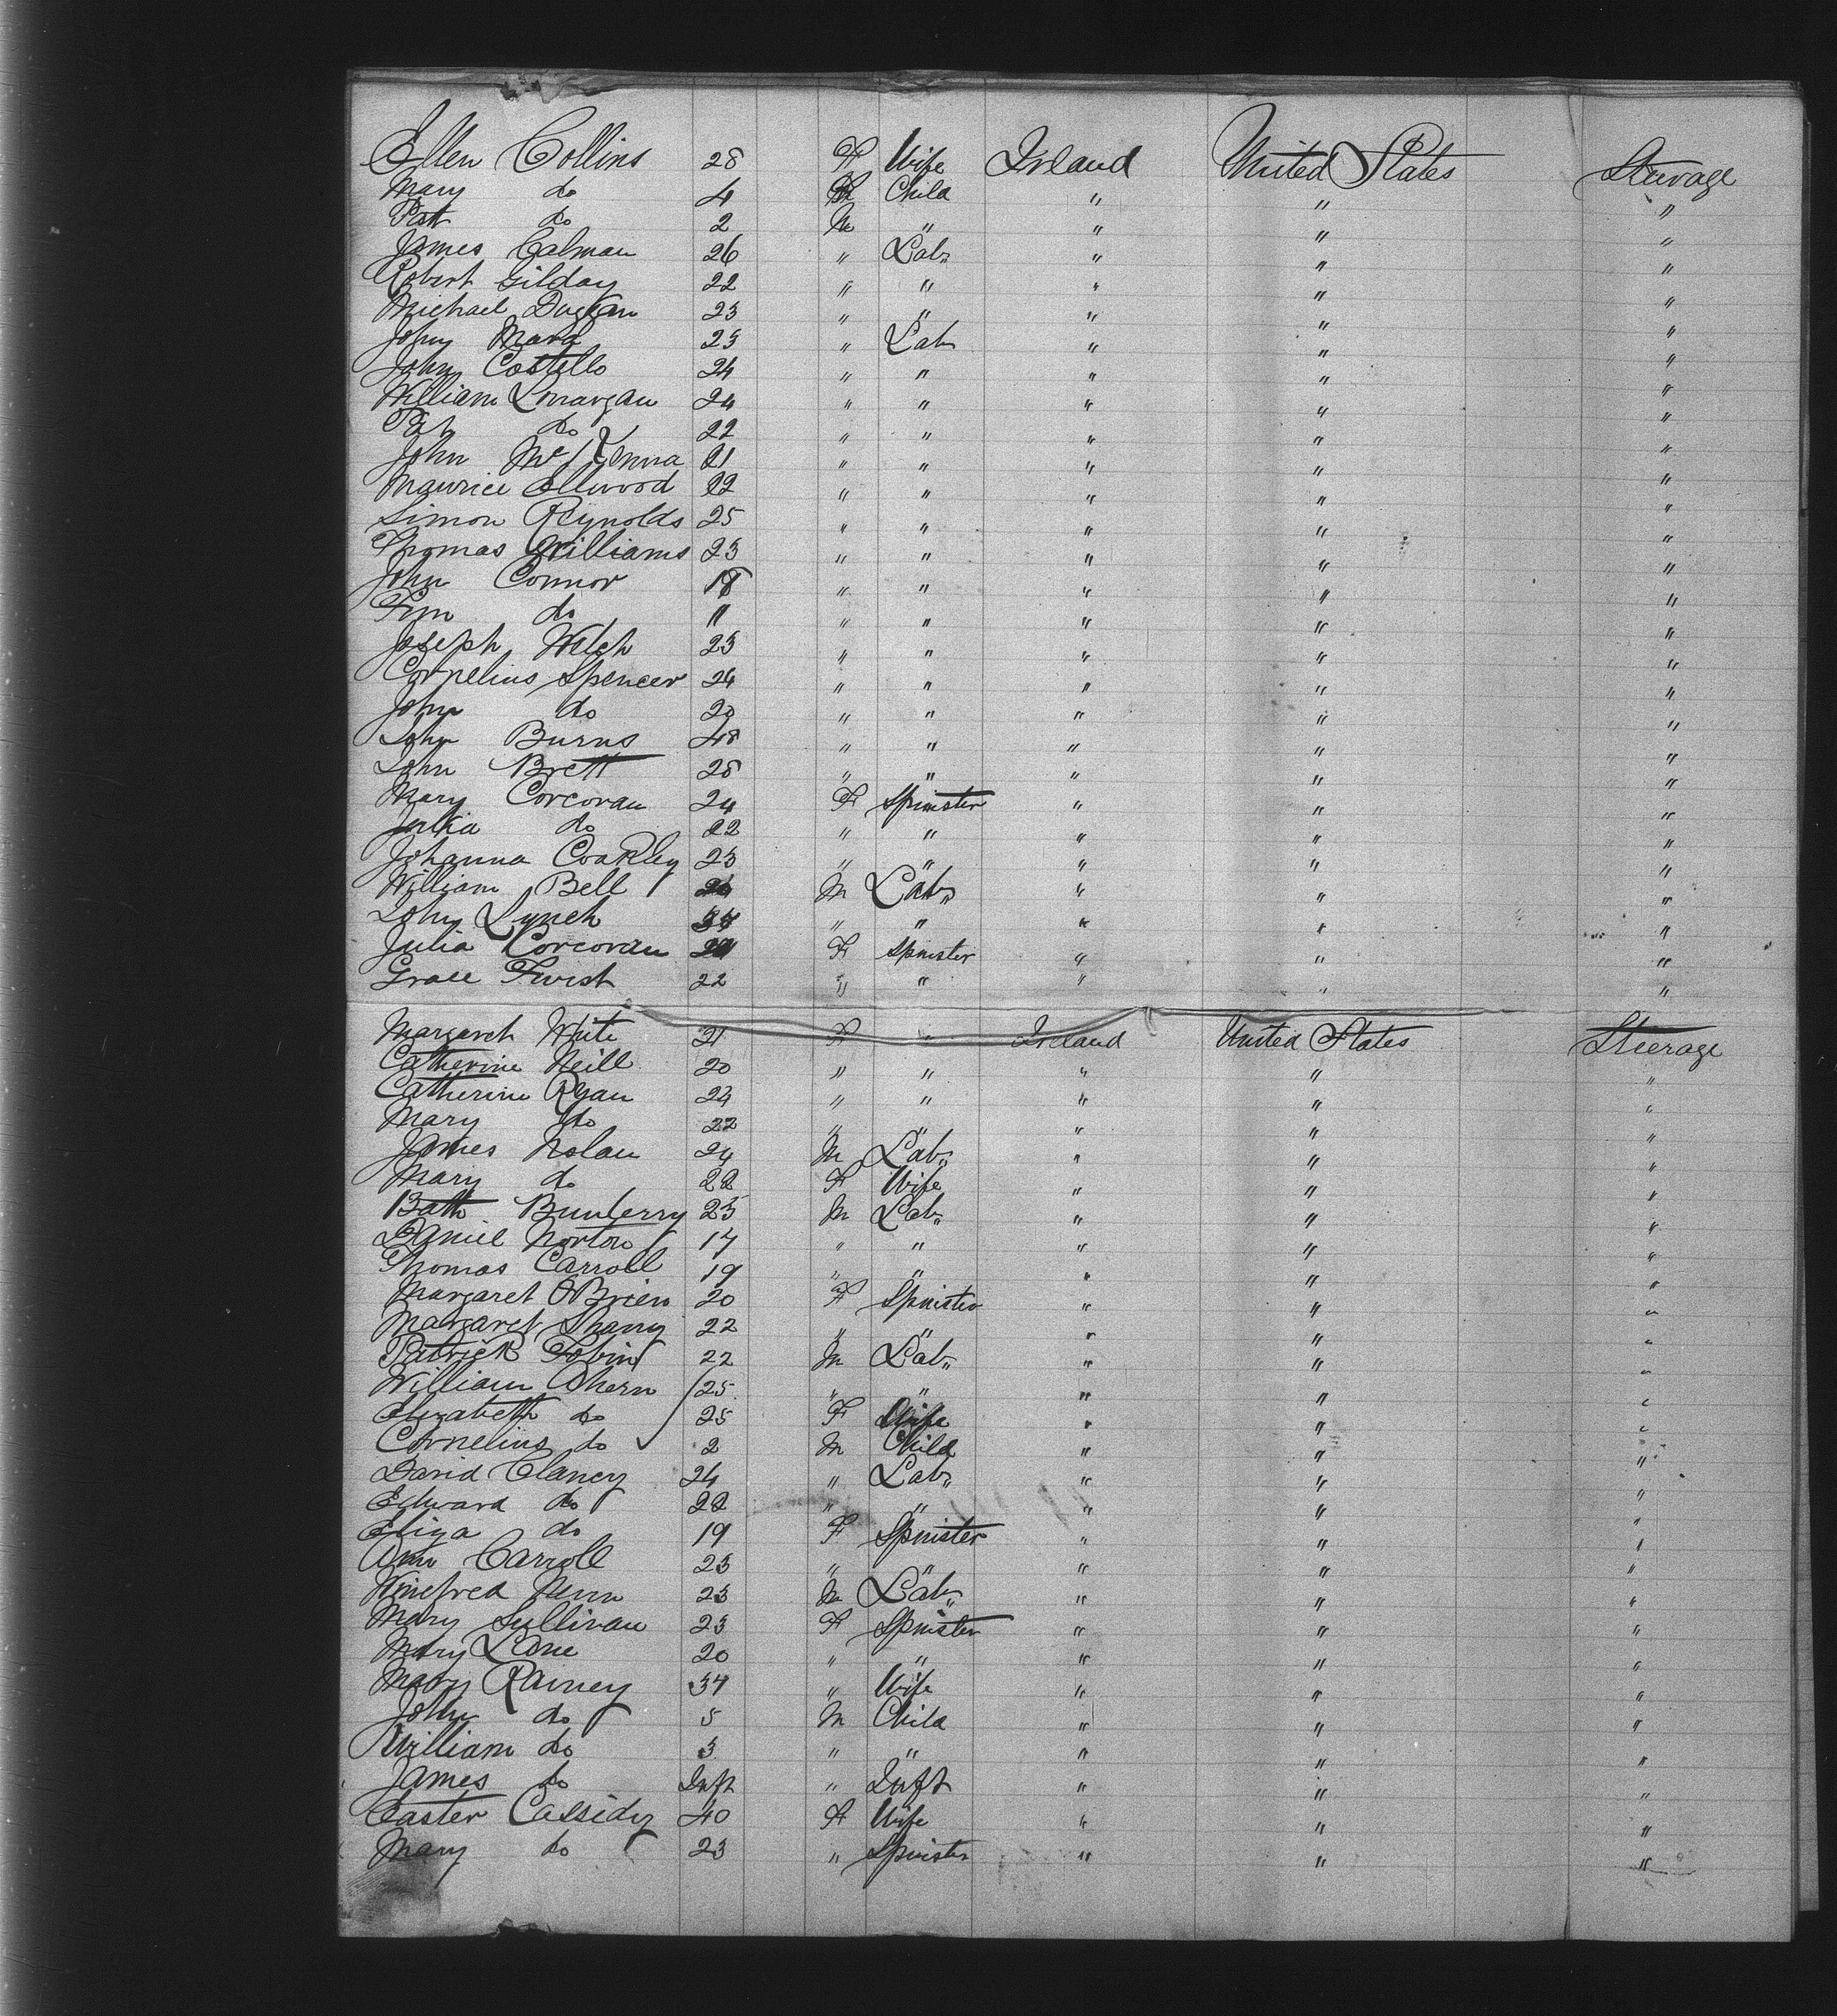 Ellen Collins 28 F Wife Ireland United States Steerage
Mary do 4 F Child " " "
Pat do 2 M " " " "
James Calman 26 " Lab" " " "
Robert Gilday 22 " " " " "
Michael Duggan 23 " " " " "
John Mara 23 " Lab " " "
John Costello 24 " " " " "
William Lonargan 24 " " " " "
Pat do 22 " " " " "
John McKenna 21 " " " " "
Maurice Ellwood 22 " " " " "
Simon Reynolds 25 " " " " "
Thomas Williams 23 " " " " "
John Connor 18 " " " " "
Tim do 11 " " " " "
Joseph Welch 23 " " " " "
Cornelius Spencer 24 " " " " "
John do 20 " " " " "
John Burns 48 " " " " "
John Brett 28 " " " " "
Mary Corcoran 24 F Spinster " " "
Julia do 22 " " " " "
Johanna Coakley 23 " " " " "
William Bell M Lab" " " "
John Lynch " " " " "
Julia Corcoran F Spinster " " "
Grace Twist 22 " " " " "
Margaret White 21 F " Ireland United States Steerage
Catherine Neill 20 " " " " "
Catherine Ryan 24 " " " " "
Mary do 22 " " " " "
James Nolan 24 M Lab" " " "
Mary do 22 F Wife " " "
Batt Bunberry 23 M Lab" " " "
Daniel Norton 17 " " " " "
Thomas Carroll 19 " " " " "
Margaret OBrien 20 F Spinster " " "
Margaret 22 " " " " "
Patrick Tobin 22 M Lab" " " "
William Ahern 25 " " " " "
Elizabeth do 25 F Wife " " "
Cornelius do 2 M Child " " "
David Clancy 24 " Lab" " " "
Edward do 22 " " " " "
Eliza do 19 F Spinster " " "
Ann Carroll 23 " " " " "
Winefred 23 M Lab" " " "
Mary Sullivan 23 F Spinster " " "
Mary Lane 20 " " " " "
Mary Rainey 37 " Wife " " "
John do 5 M Child " " "
William do 3 " " " " "
James do Inft " Inft " " "
Easter Cassidy 40 F Wife " " "
Mary do 23 " Spinster " " "